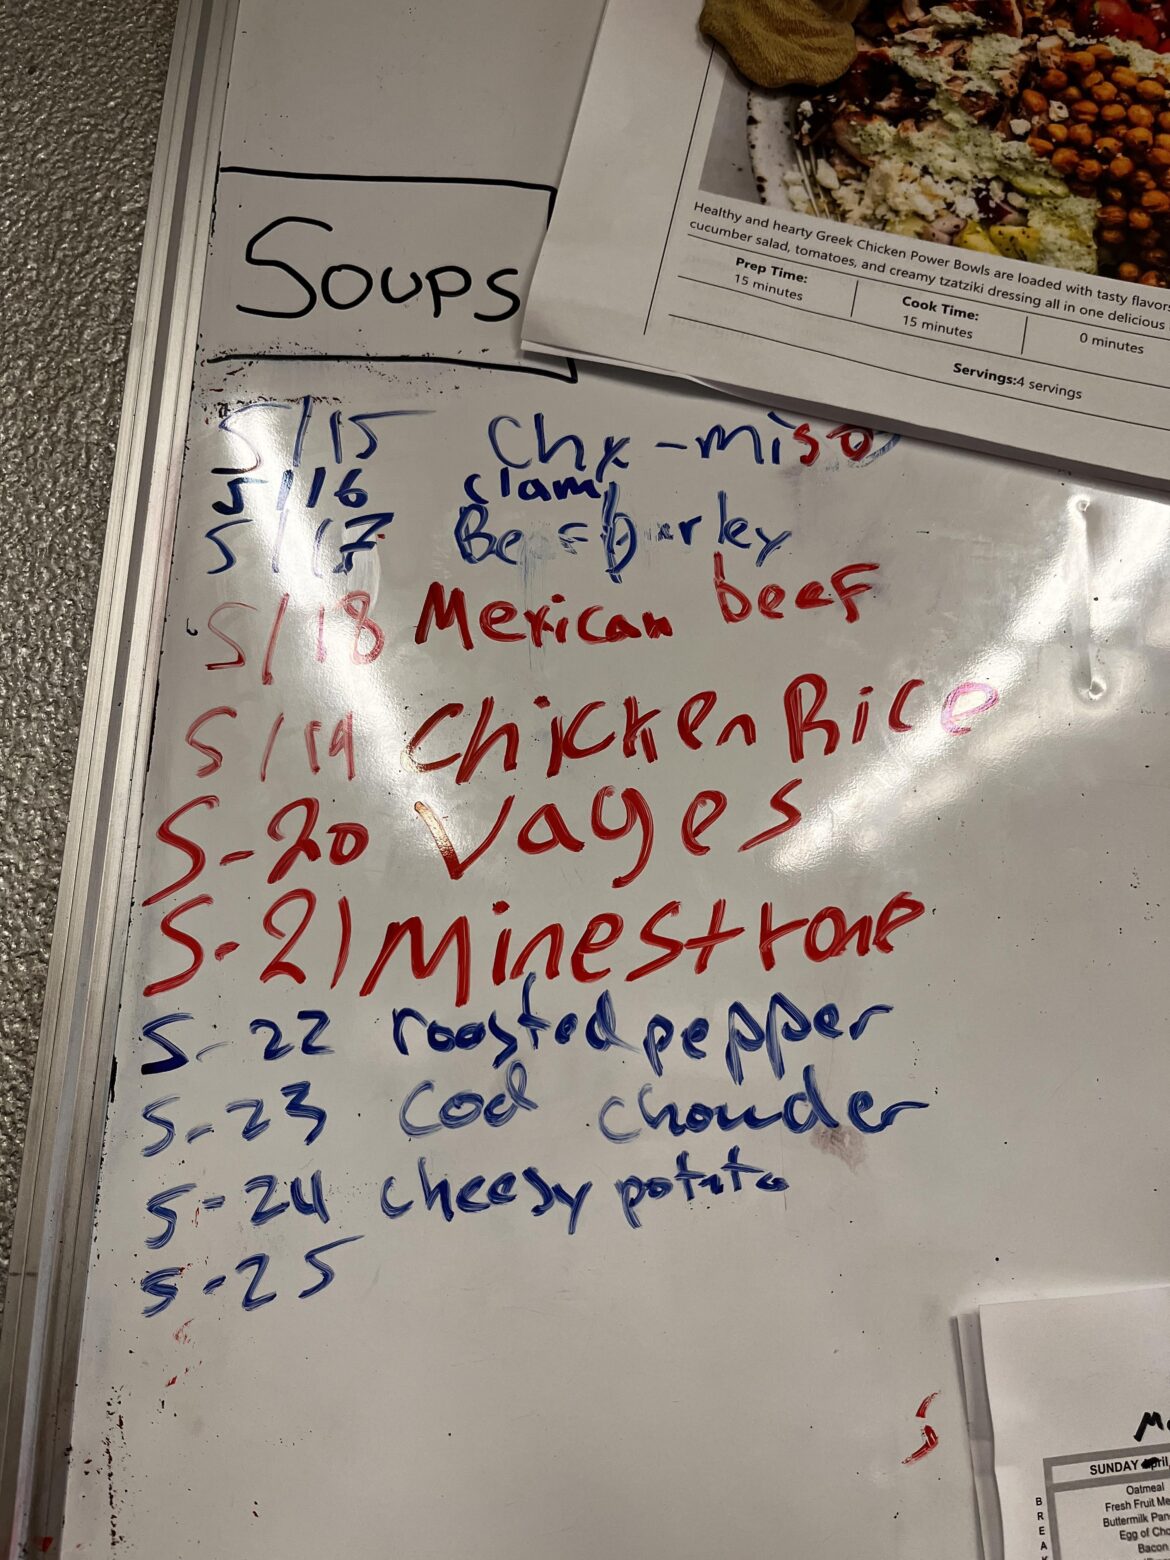 Healthy and hearty Greek Chicken Power Bowls are loaded with tasty flavors
cucumber salad, tomatoes, and creamy tzatziki dressing all in one delicious
Prep Time:
15 minutes
Cook Time:
15 minutes
0 minutes
Servings:4 servings
SOUPS
5/15 Chx-miso
5/16 clam
5/17 Beef Barley
5/18 Mexican beef
5/19 Chicken Rice
5-20 Vages
5-21 Minestrone
5-22 roasted pepper
5-23 Cod chowder
5-24 cheesy potato
5-25
5
SUNDAY
Oatmeal
Fresh Fruit
Buttermilk
Egg of
Bacon